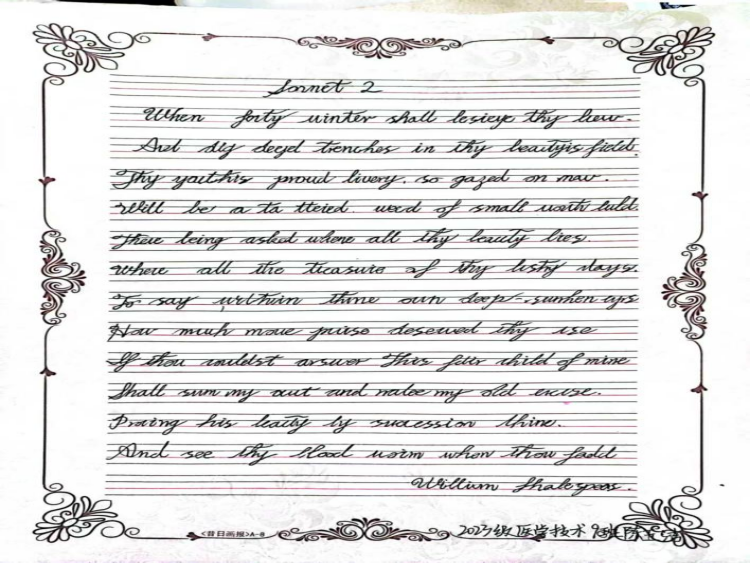 Sonnet 2
When forty winter shall lesieye thy brew.
And dig deyel trenches in thy beautyis field.
Thy youthis proud livery. so gazed on naw.
Will be a ta tteied weed of small worth hald.
There being asked where all thy beauty lies.
Where all the treasure of thy lusty days.
To say within thine own deep-sunken eyes
How much more praise deserved thy use
If thou couldst answer This fair child of mine
Shall sum my out and make my old excuse.
Proving his beauty by succession thine.
And see thy blood warm when thou fadd
William Shakespeas.
<昔日画报>A-8
2023级医学技术